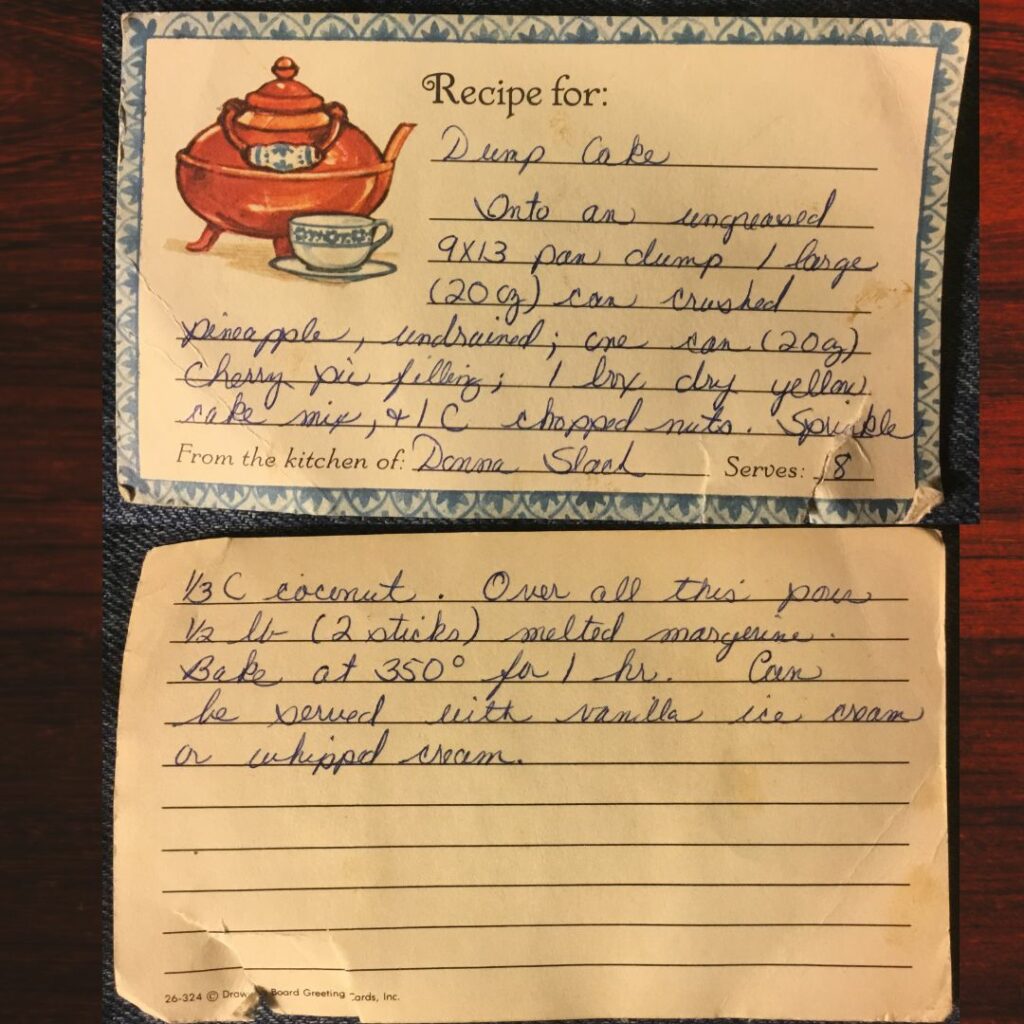 Recipe for:
Dump Cake
Onto an ungreased
9X13 pan dump 1 large
(20 oz) can crushed
pineapple, undrained; one can (20 oz)
cherry pie filling; 1 box dry yellow
cake mix, + 1 C chopped nuts. Sprinkle
From the kitchen of: Donna Slach Serves: 18
1/3 C coconut. Over all this pour
1/2 lb (2 sticks) melted margerine.
Bake at 350° for 1 hr. Can
be served with vanilla ice cream
or whipped cream.
26-324 © Draw Board Greeting Cards, Inc.